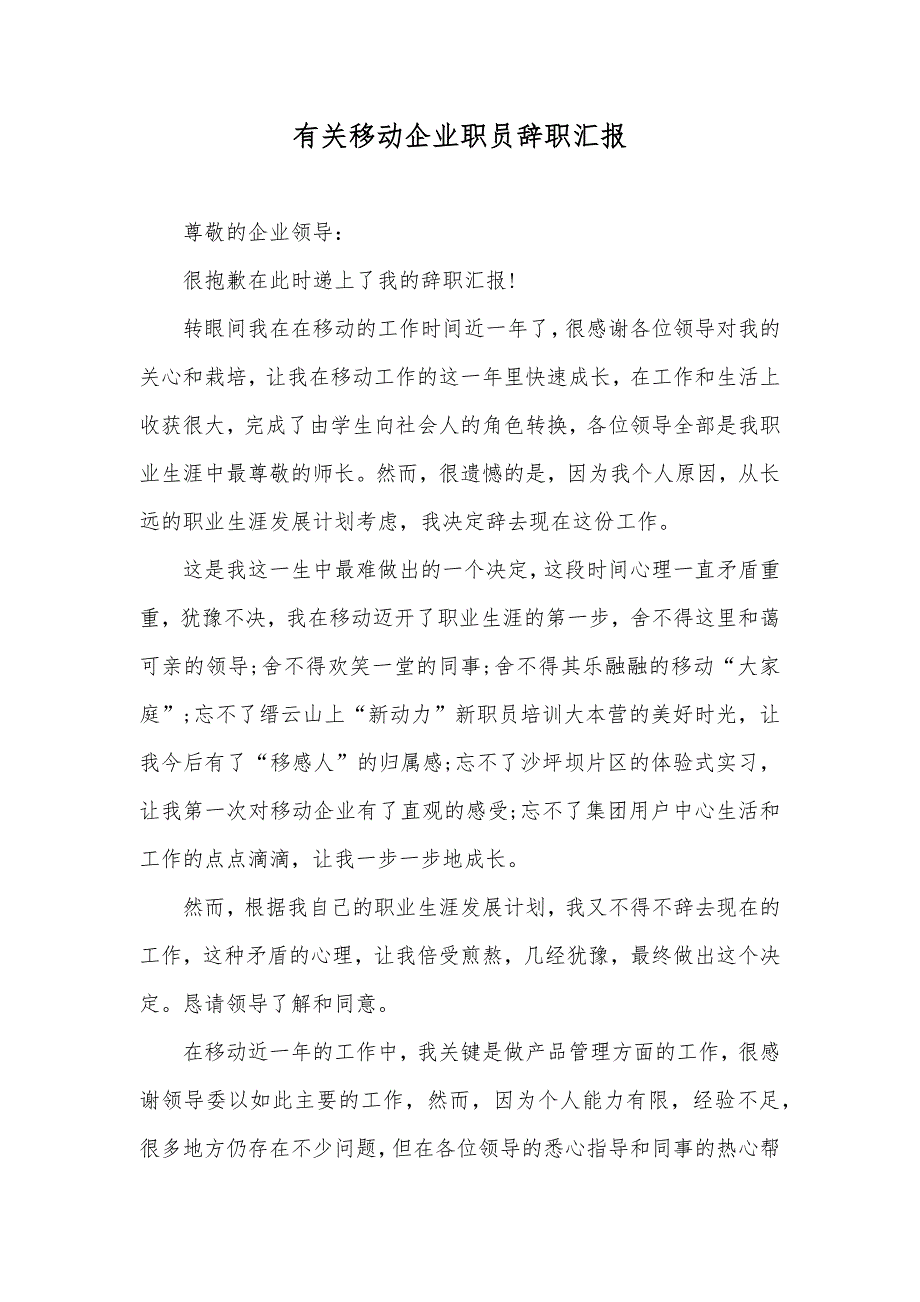 有关移动企业职员辞职汇报
尊敬的企业领导:
很抱歉在此时递上了我的辞职汇报!
转眼间我在在移动的工作时间近一年了，很感谢各位领导对我的
关心和栽培，让我在移动工作的这一年里快速成长，在工作和生活上
收获很大，完成了由学生向社会人的角色转换，各位领导全部是我职
业生涯中最尊敬的师长。然而，很遗憾的是，因为我个人原因，从长
远的职业生涯发展计划考虑，我决定辞去现在这份工作。
这是我这一生中最难做出的一个决定，这段时间心理一直矛盾重
重，犹豫不决，我在移动迈开了职业生涯的第一步，舍不得这里和蔼
可亲的领导;舍不得欢笑一堂的同事;舍不得其乐融融的移动“大家
庭”;忘不了缙云山上“新动力”新职员培训大本营的美好时光，让
我今后有了“移感人”的归属感;忘不了沙坪坝片区的体验式实习，
让我第一次对移动企业有了直观的感受;忘不了集团用户中心生活和
工作的点点滴滴，让我一步一步地成长。
然而，根据我自己的职业生涯发展计划，我又不得不辞去现在的
工作，这种矛盾的心理，让我倍受煎熬，几经犹豫，最终做出这个决
定。恳请领导了解和同意。
在移动近一年的工作中，我关键是做产品管理方面的工作，很感
谢领导委以如此主要的工作，然而，因为个人能力有限，经验不足，
很多地方仍存在不少问题，但在各位领导的悉心指导和同事的热心帮